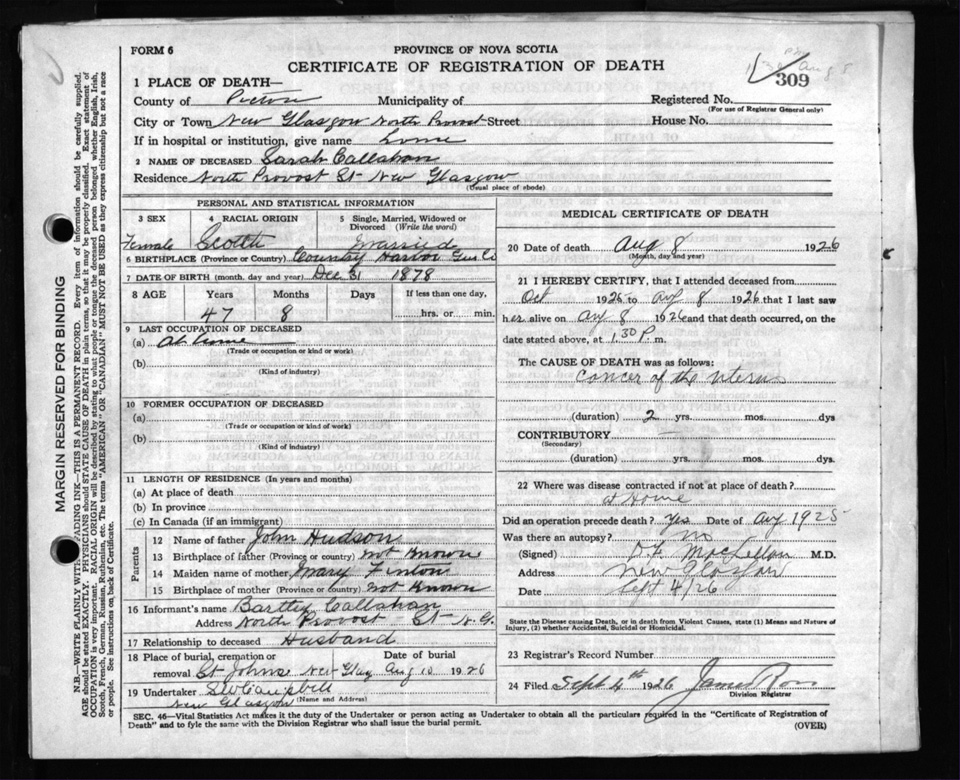 FORM 6
PROVINCE OF NOVA SCOTIA
CERTIFICATE OF REGISTRATION OF DEATH
309
1 PLACE OF DEATH—
County of Pictou Municipality of Registered No.
(For use of Registrar General only)
City or Town New Glasgow North Provost Street House No.
If in hospital or institution, give name home
2 NAME OF DECEASED Sarah Callahan
Residence North Provost St New Glasgow
(Usual place of abode)
PERSONAL AND STATISTICAL INFORMATION
3 SEX 4 RACIAL ORIGIN 5 Single, Married, Widowed or Divorced (Write the word)
Female Scotch Married
6 BIRTHPLACE (Province or Country) Country Harbor Gus Co
7 DATE OF BIRTH (month, day and year) Dec 31 1878
8 AGE Years Months Days If less than one day,
47 8 hrs. or min.
9 LAST OCCUPATION OF DECEASED
(a) At home
(Trade or occupation or kind or work)
(b)
(Kind of industry)
10 FORMER OCCUPATION OF DECEASED
(a)
(Trade or occupation or kind of work)
(b)
(Kind of industry)
11 LENGTH OF RESIDENCE (In years and months)
(a) At place of death
(b) In province
(c) In Canada (if an immigrant)
Parents
12 Name of father John Hudson
13 Birthplace of father (Province or country) Not Known
14 Maiden name of mother Mary
15 Birthplace of mother (Province or country) Not Known
16 Informant's name Bartley Callahan
Address North Provost St N.G.
17 Relationship to deceased Husband
18 Place of burial, cremation or removal Date of burial
St Johns New Glag Aug 10 1926
19 Undertaker Campbell
New Glasgow (Name and Address)
MEDICAL CERTIFICATE OF DEATH
20 Date of death Aug 8 1926
(Month, day and year)
21 I HEREBY CERTIFY, that I attended deceased from
Oct 1925 to Aug 8 1926 that I last saw
her alive on Aug 8 1926 and that death occurred, on the
date stated above, at 1.30 P. m.
The CAUSE OF DEATH was as follows:
Cancer of the uterus
(duration) 2 yrs. mos. dys
CONTRIBUTORY
(Secondary)
(duration) yrs. mos. dys.
22 Where was disease contracted if not at place of death?
at Home
Did an operation precede death? Yes Date of Aug 1925
Was there an autopsy? no
(Signed) D.F. MacLellan M.D.
Address New Glasgow
Date Sept 4/26
State the Disease causing Death, or in death from Violent Causes, state (1) Means and Nature of Injury, (2) whether Accidental, Suicidal or Homicidal.
23 Registrar's Record Number
24 Filed Sept 4th 1926 James Ross
Division Registrar
SEC. 46—Vital Statistics Act makes it the duty of the Undertaker or person acting as Undertaker to obtain all the particulars required in the "Certificate of Registration of
Death" and to fyle the same with the Division Registrar who shall issue the burial permit. (OVER)
MARGIN RESERVED FOR BINDING
N.B.—WRITE PLAINLY WITH UNFADING INK—THIS IS A PERMANENT RECORD. Every item of information should be carefully supplied.
AGE should be stated EXACTLY. PHYSICIANS should STATE CAUSE OF DEATH in plain terms, so that it may be properly classified. Exact statement of
OCCUPATION is very important. RACIAL ORIGIN will be described by stating to what people or tongue the deceased person belonged whether English, Irish,
Scotch, French, German, Russian, Ruthenian, etc. The terms "AMERICAN" OR "CANADIAN" MUST NOT BE USED as they express citizenship but not a race
or people. See instructions on back of Certificate.